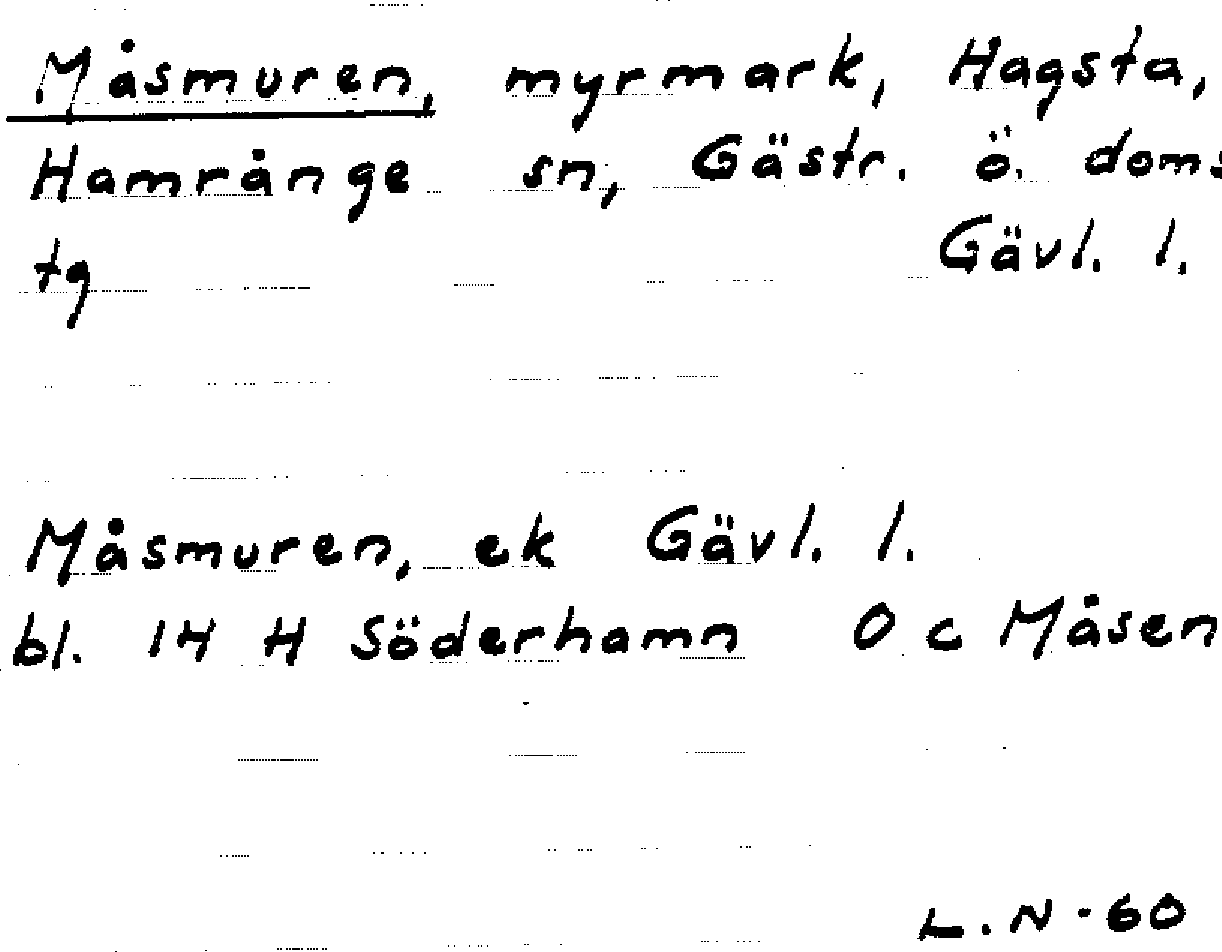 Måsmuren, myrmark, Hagsta,
Hamrånge sn, Gästr. ö. doms
tg Gävl. l.
Måsmuren, ek Gävl. l.
bl. 14 H Söderhamn O c Måsen
L. N - 60